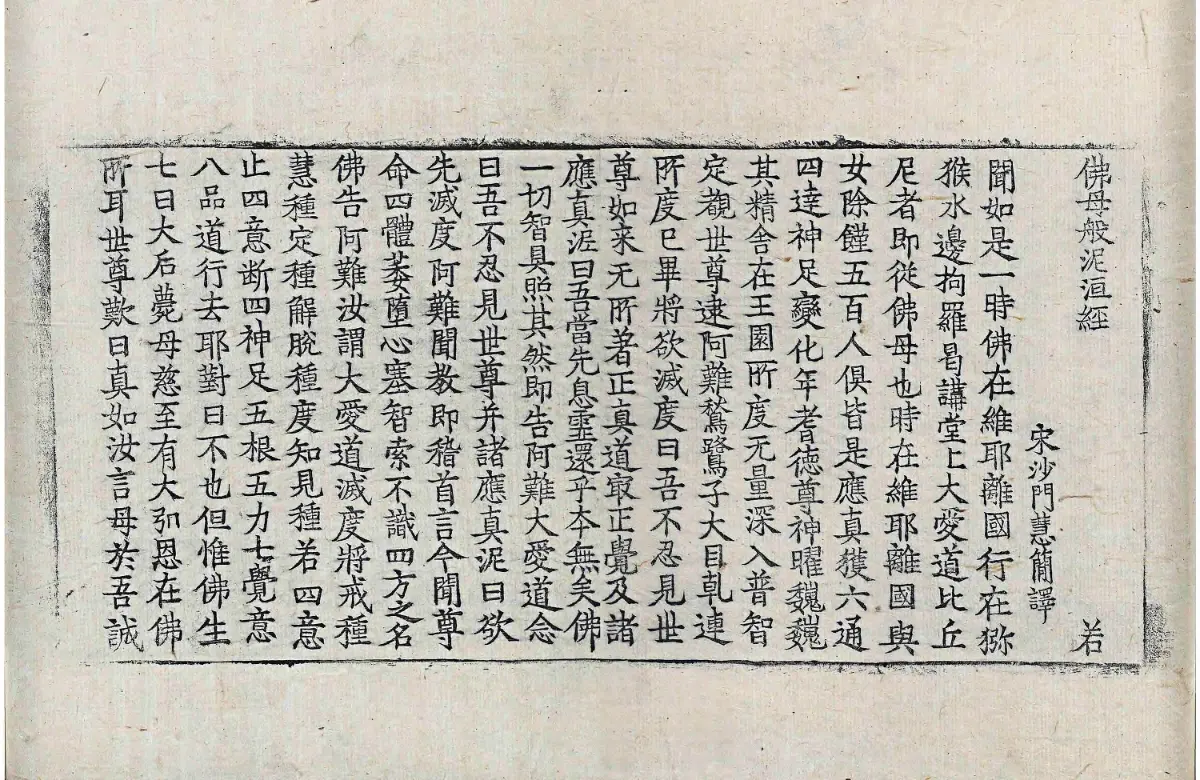 佛母般泥洹經 若
宋沙門慧蕳譯
聞如是一時佛在維耶離國行在猕
猴水邊拘羅曷講堂上大愛道比丘
尼者即從佛母也時在維耶離國與
女除饉五百人俱皆是應真獲六通
四達神足變化年耆德尊神曜巍巍
其精舍在王園所度无量深入普智
定覩世尊逮阿難鶖鷺子大目乹連
所度已畢將欲滅度曰吾不忍見世
尊如来无所著正真道㝡正覺及諸
應真泥曰吾當先息霊還乎夲無矣佛
一切智具照其然即告阿難大愛道念
曰吾不忍見世尊并諸應真泥曰欲
先滅度阿難聞教即稽首言今聞尊
命四體萎堕心塞智索不識四方之名
佛告阿難汝謂大愛道滅度將戒種
慧種定種解脫種度知見種若四意
止四意断四神足五根五力七覺意
八品道行去耶對曰不也但惟佛生
七日大后薨母慈至有大弘恩在佛
所耳世尊歎曰真如汝言母於吾誠